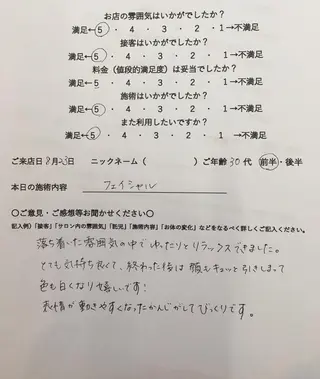 お店の雰囲気はいかがでしたか？
満足←5 ・ 4 ・ 3 ・ 2 ・ 1→不満足
接客はいかがでしたか？
満足←5 ・ 4 ・ 3 ・ 2 ・ 1→不満足
料金（値段的満足度）は妥当でしたか？
満足←5 ・ 4 ・ 3 ・ 2 ・ 1→不満足
施術はいかがでしたか？
満足←5 ・ 4 ・ 3 ・ 2 ・ 1→不満足
また利用したいですか？
満足←5 ・ 4 ・ 3 ・ 2 ・ 1→不満足
ご来店日 8月 日 ニックネーム（ ）ご年齢 30代 前半・後半
本日の施術内容 フェイシャル
〇ご意見・ご感想等お聞かせください〇
記入例）「接客」「サロン内の雰囲気」「託児」「施術内容」「お体の変化」などをなるべく詳しくご記入ください。
落ち着いた雰囲気の中でゆったりとリラックスできました。
とても気持ち良くて、終わった後は顔もキュッと引きしまって
色も白くなり嬉しいです！
表情が動きやすくなったかんじがしてびっくりです。